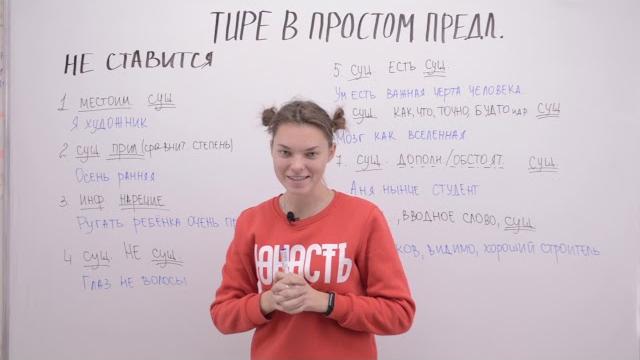 ТИРЕ В ПРОСТОМ ПРЕДЛ.
НЕ СТАВИТСЯ
1 МЕСТОИМ СУЩ
Я ХУДОЖНИК
2 СУЩ ПРИЛ (СРАВНИТ СТЕПЕНЬ)
ОСЕНЬ РАННЯЯ
3. ИНФ. НАРЕЧИЕ
РУГАТЬ РЕБЕНКА ОЧЕНЬ
4 СУЩ. НЕ СУЩ.
ГЛАЗ НЕ ВОЛОСЫ
5. СУЩ ЕСТЬ СУЩ.
УМ ЕСТЬ ВАЖНАЯ ЧЕРТА ЧЕЛОВЕКА
СУЩ КАК, ЧТО, ТОЧНО, БУДТО И ДР. СУЩ
МОЗГ КАК ВСЕЛЕННАЯ
7. СУЩ. ДОПОЛН./ОБСТОЯТ. СУЩ.
АНЯ НЫНЧЕ СТУДЕНТ
, ВВОДНОЕ СЛОВО, СУЩ
КОВ, ВИДИМО, ХОРОШИЙ СТРОИТЕЛЬ
ЮНОСТЬ